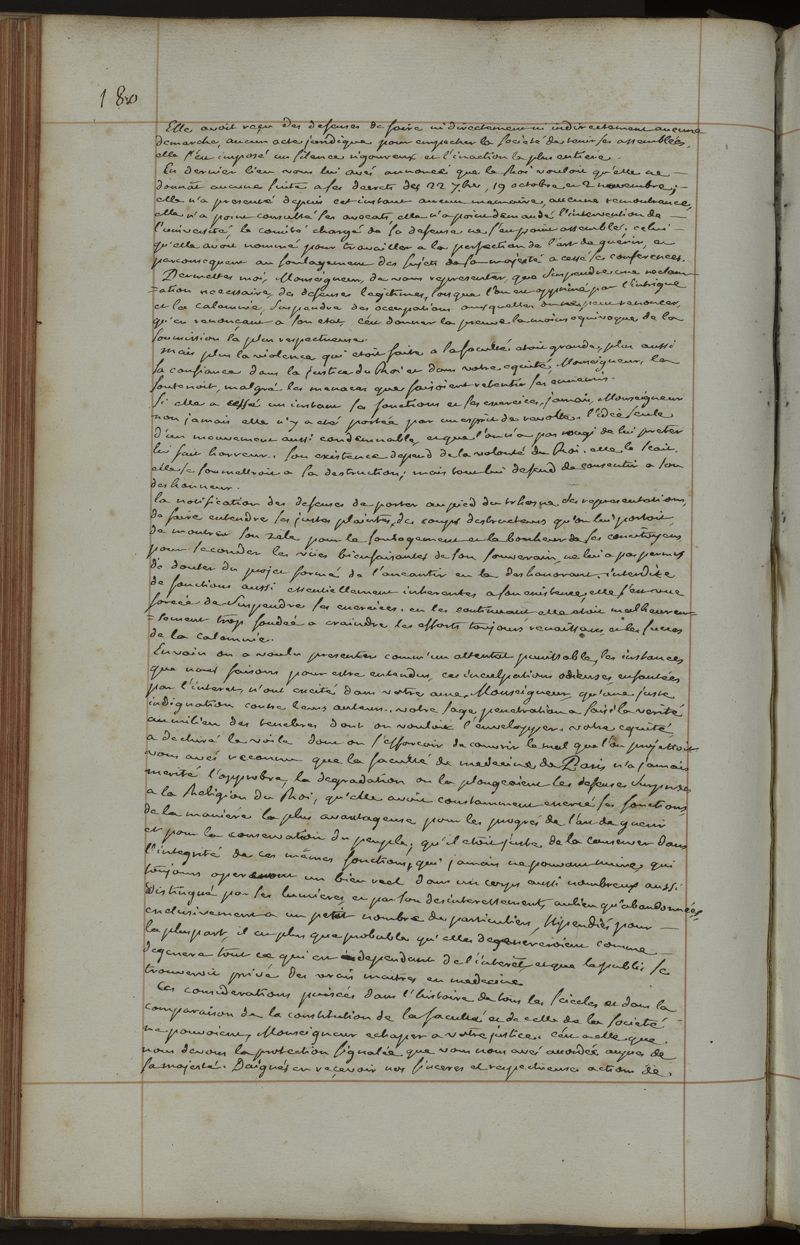 180
Elle avoit reçu des defenses de faire ni directement ni indirectement aucune
demarche, aucun acte juridique pour empecher la Societé de tenir ses assemblées,
elle s'en imposé un silence rigoureux et l'inaction la plus entiere.
En dernier lieu vous lui avés annoncé que le Roi vouloit qu'elle ne
donnât aucune suite a ses decrets des 22 7bre, 19 octobre et 2 novembre,
elle n'a presenté depuis cet instant aucun memoire, aucune remontrance,
elle n'a point consulté ses avocats, elle n'a point demandé l'intervention de
l'université, le comité chargé de sa defense ne s'est point assemblé. celui
qu'elle avoit nommé pour travailler a la perfection de l'art de guérir, et
par consequent au soulagement des sujets de sa majesté a cessé ses conferences.
Permettes moi, Monseigneur, de vous representer, que suspendre une reclam
=ation necessaire, des defenses legitimes, lorsque l'on est opprimé par l'intrigue
et la calomnie, suspendre des occupations auxquelles on ne peut renoncer
qu'en renonçant a son etat, c'est donner la preuve la moins equivoque de la
soumission la plus respectueuse.
Mais plus la violence qui etoit faite a la faculté etoit grande, plus aussi
sa confiance dans la justice du Roi et dans votre equité, Monseigneur, la
soutenoit, malgré les menaces que faisoient retentir ses ennemis.
Si elle a cessé un instant ses fonctions et ses exercices, jamais, Monseigneur
non jamais elle n'y a eté portée par un esprit de revolte. l'idée seule
d'un mouvement aussi condemnable, et que l'on n'a pas rougi de lui preter
lui fait horreur. son existence depend de la volonté du Roi. elle le scait.
elle se soumettroit a sa destruction; mais tout lui defend de consentir a son
deshonneur.
la notification des defenses de porter au pied du trhosne des representations,
de faire entendre ses justes plaintes, des coups destructeurs qu'on lui portoit,
de montrer son zèle pour le soulagement et le bonheur de ses concitoyens
pour seconder les vües bienfaisantes de son souverain, ne lui a pas permis
de douter du projet formé de l'aneantir en la deshonorant. interdite
de fonctions aussi essentiellement inherentes a son existence, elle s'est vue
forcée de suspendre ses exercices. en les continuant elle etoit malheureu
=sement trop fondée a craindre les efforts toujours renaissans et les furies
de la calomnie.
Envain on a voulu presenter comm'un attentat punissable, les instances
que nous faisons pour estre entendus, ces inculpations odieuses, enfantées
par l'interet, n'ont excité dans votre ame, Monseigneur, qu'une juste
indignation contre leurs auteurs. votre sage penetration a saisi la verité
au milieu des tenebres dont on vouloit l'envelopper. votre equité
a dechiré le voile dont on s'efforcoit de couvrir le mal que l'on projettoit
vous avés reconnu que la faculté de medecine de Paris n'a jamais
merité l'opprobre, la degradation ou la plongeoient les defenses surprises
a la Religion du Roi, qu'elle avoit constamment exercé ses fonctions
de la maniere la plus avantageuse pour les progrés de l'art de guerir
et pour la conservation du peuple; qu'il etoit juste de la conserver dans
l'integrité de ces mêmes fonctions, qui jamais ne pouvant nuire, qui
toujours operent un bien reel dans un corps aussi nombreux aussi
distingué par ses lumieres, et par son desinteressement, au lieu qu'abandonnées
exclusivement a un petit nombre de particuliers, stipendiés pour
la pluspart, il est plus que probable qu'elles degenereroient comme
degenere tout ce qui est dependant de l'interêt et que le public se
trouveroit privé des vrais maitres en medecine
Ces considerations puisées dans l'histoire de tous les siecles et dans la
comparaison de la constitution de la faculté et de celle de la Societé
ne pouvoient, Monseigneur echaper a votre justice. c'est a elle que
nous devons la protection signalée que vous nous avés accordée aupres de
sa majesté. Daignés en recevoir nos sinceres et respectueuses actions de